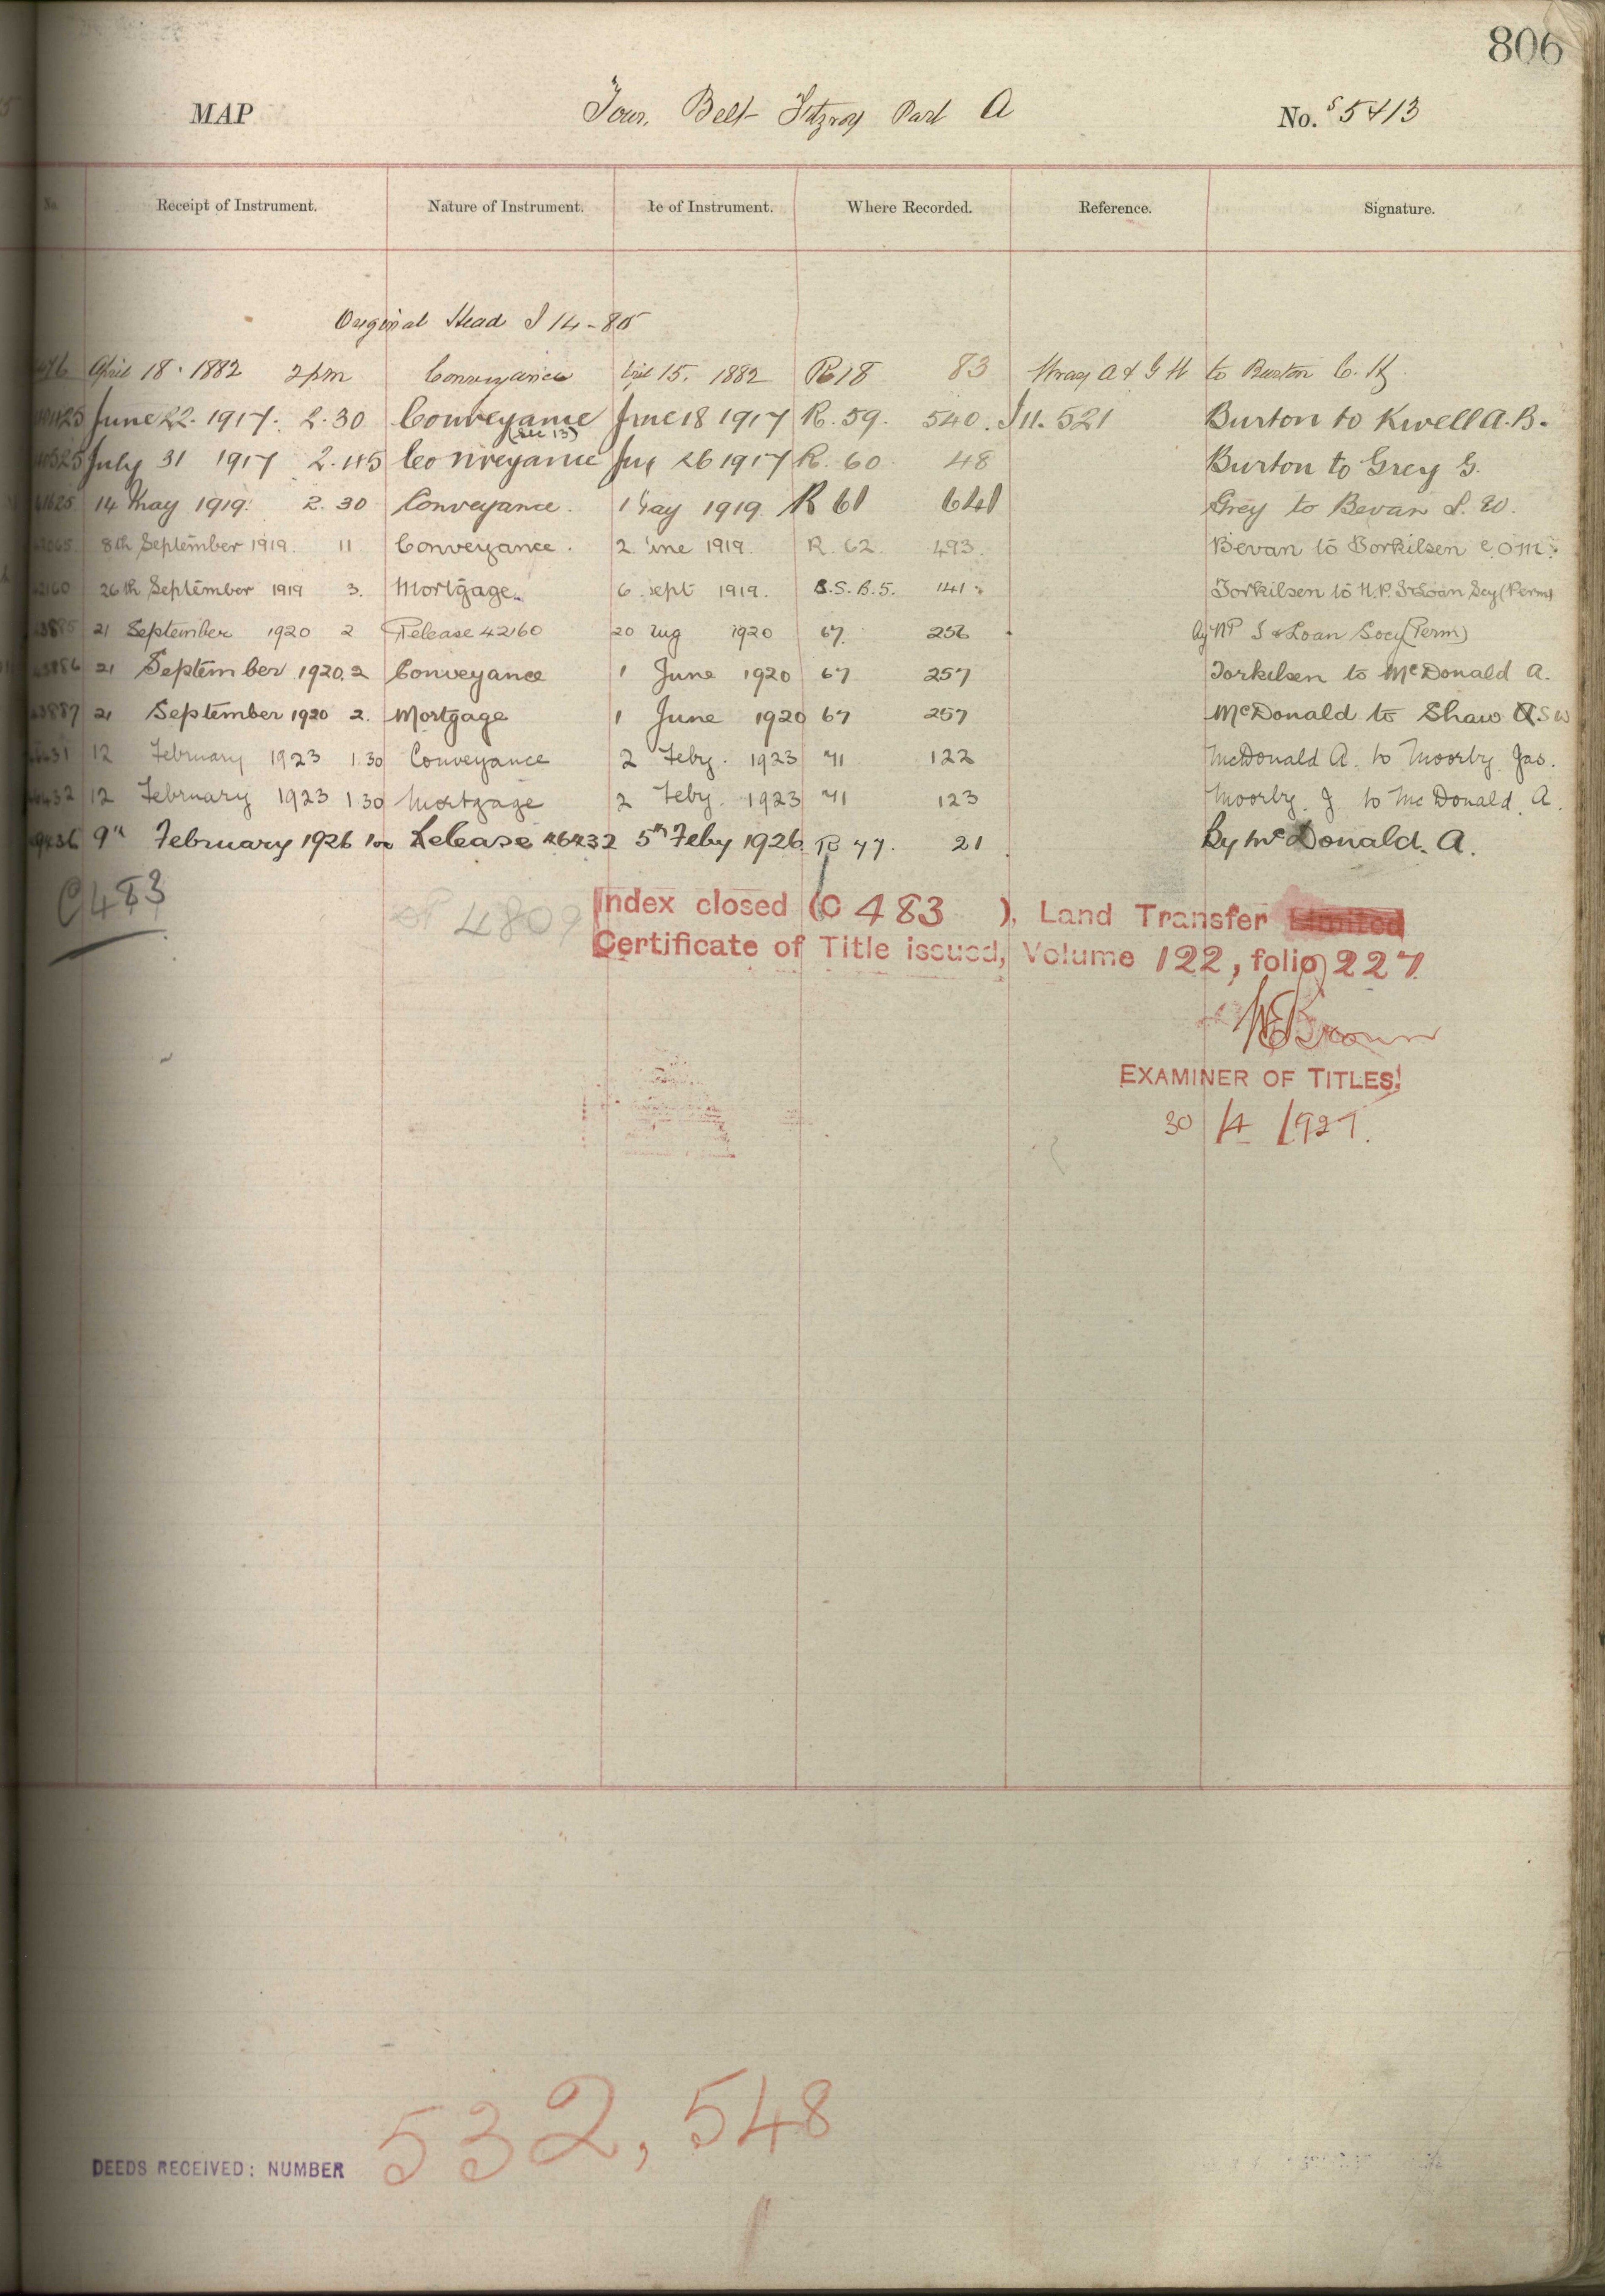 806
MAP Town Belt Fitzroy Part A No. 5413
No. Receipt of Instrument. Nature of Instrument. te of Instrument. Where Recorded. Reference. Signature.
Original Head I 14 - 85
April 18. 1882 2pm Conveyance 15. 1882 R18 83 A & G H to Burton C. H.
June 22. 1917. 2.30 Conveyance June 18 1917 R. 59. 540. I 11. 521 Burton to Kivell A. B.
(Sec 13)
July 31 1917 2.45 Conveyance July 26 1917 R. 60 48 Burton to Grey G.
14 May 1919. 2.30 Conveyance. 1 May 1919. R 61 641 Grey to Bevan S. W.
8th September 1919. 11 Conveyance. 2 June 1919. R. 62. 493. Bevan to Torkilsen C.O.M.
42160 26th September 1919 3. Mortgage. 6 Sept 1919. B.S.B.5. 141. Torkilsen to N.P. I & Loan Socy (Perm)
43885 21 September 1920 2 Release 42160 20 Aug 1920 67. 256 By NP I & Loan Socy (Perm)
43886 21 September 1920. 2 Conveyance 1 June 1920 67 257 Torkilsen to McDonald A.
43887 21 September 1920 2. Mortgage 1 June 1920 67 257 McDonald to Shaw A S W
46431 12 February 1923 1.30 Conveyance 2 Feby. 1923 71 122 McDonald A. to Moorby Jas.
46432 12 February 1923 1.30 Mortgage 2 Feby. 1923 71 123 Moorby. J. to Mc Donald. A.
9th February 1926 Release 46432 5th Feby 1926. R 77. 21 By McDonald. A.
C483
4809
Index closed (C 483 ), Land Transfer Limited
Certificate of Title issued, Volume 122, folio 227.
Brown
EXAMINER OF TITLES.
30/4/1927.
532, 548
DEEDS RECEIVED: NUMBER